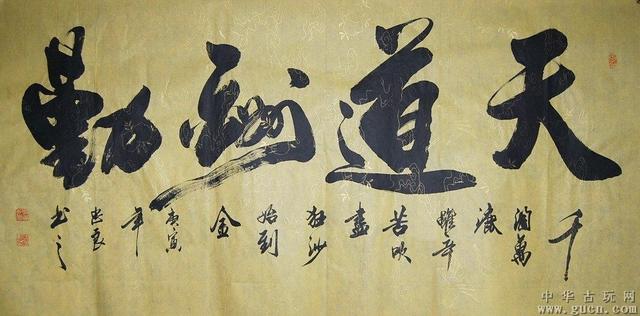 天道酬勤
千淘萬漉雖辛苦吹盡狂沙始到金
庚寅年
书之
中华古玩网
www.gucn.com